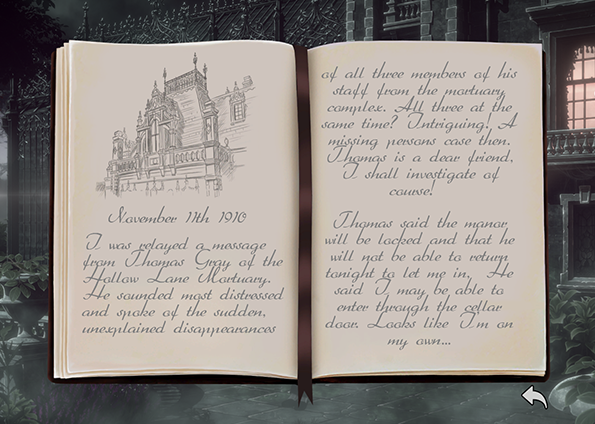 November 11th 1910
I was relayed a message
from Thomas Gray of the
Hollow Lane Mortuary.
He sounded most distressed
and spoke of the sudden,
unexplained disappearances
of all three members of his
staff from the mortuary
complex. All three at the
same time? Intriguing! A
missing persons case then.
Thomas is a dear friend,
I shall investigate of
course!
Thomas said the manor
will be locked and that he
will not be able to return
tonight to let me in. He
said I may be able to
enter through the cellar
door. Looks like I'm on
my own...